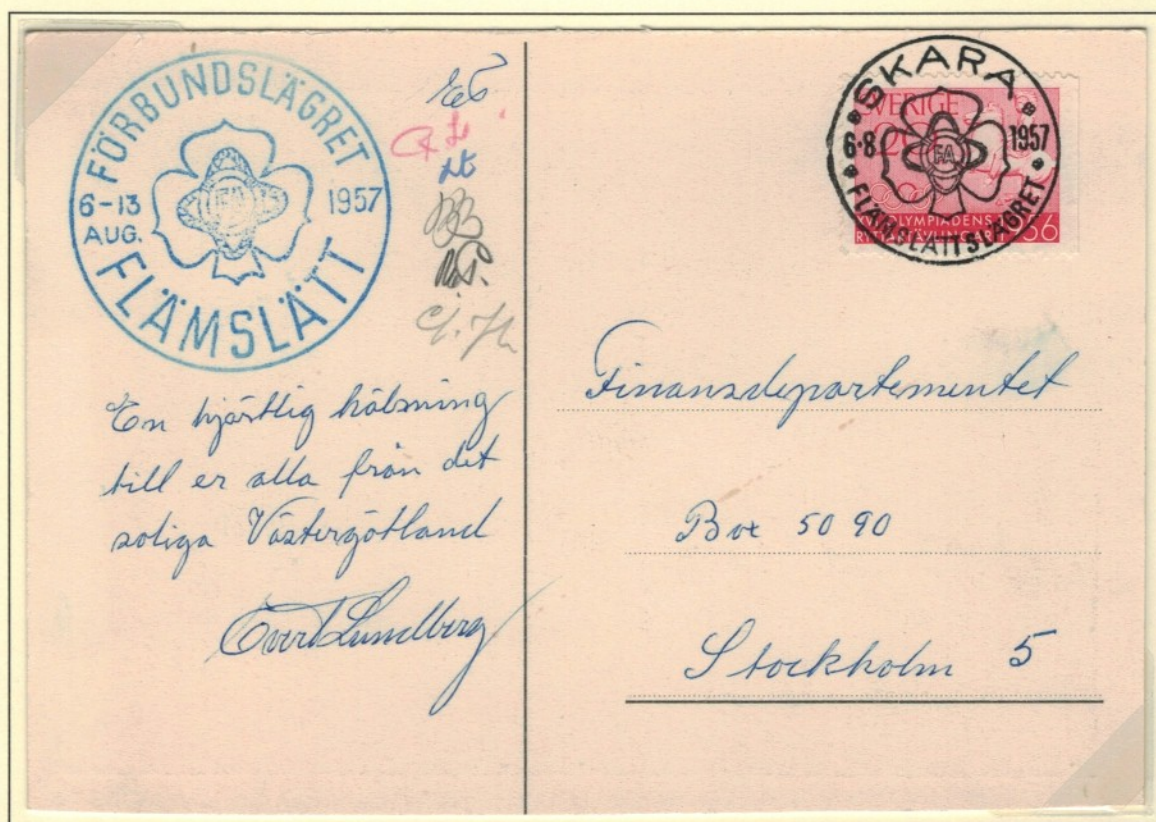 FÖRBUNDSLÄGRET
6-13 AUG. 1957
FLÄMSLÄTT
En hjärtlig hälsning
till er alla från det
soliga Västergötland
Evert Lundberg
SKARA
6·8 1957
FLÄMSLÄTTSLÄGRET
SVERIGE
Finansdepartementet
Box 50 90
Stockholm 5